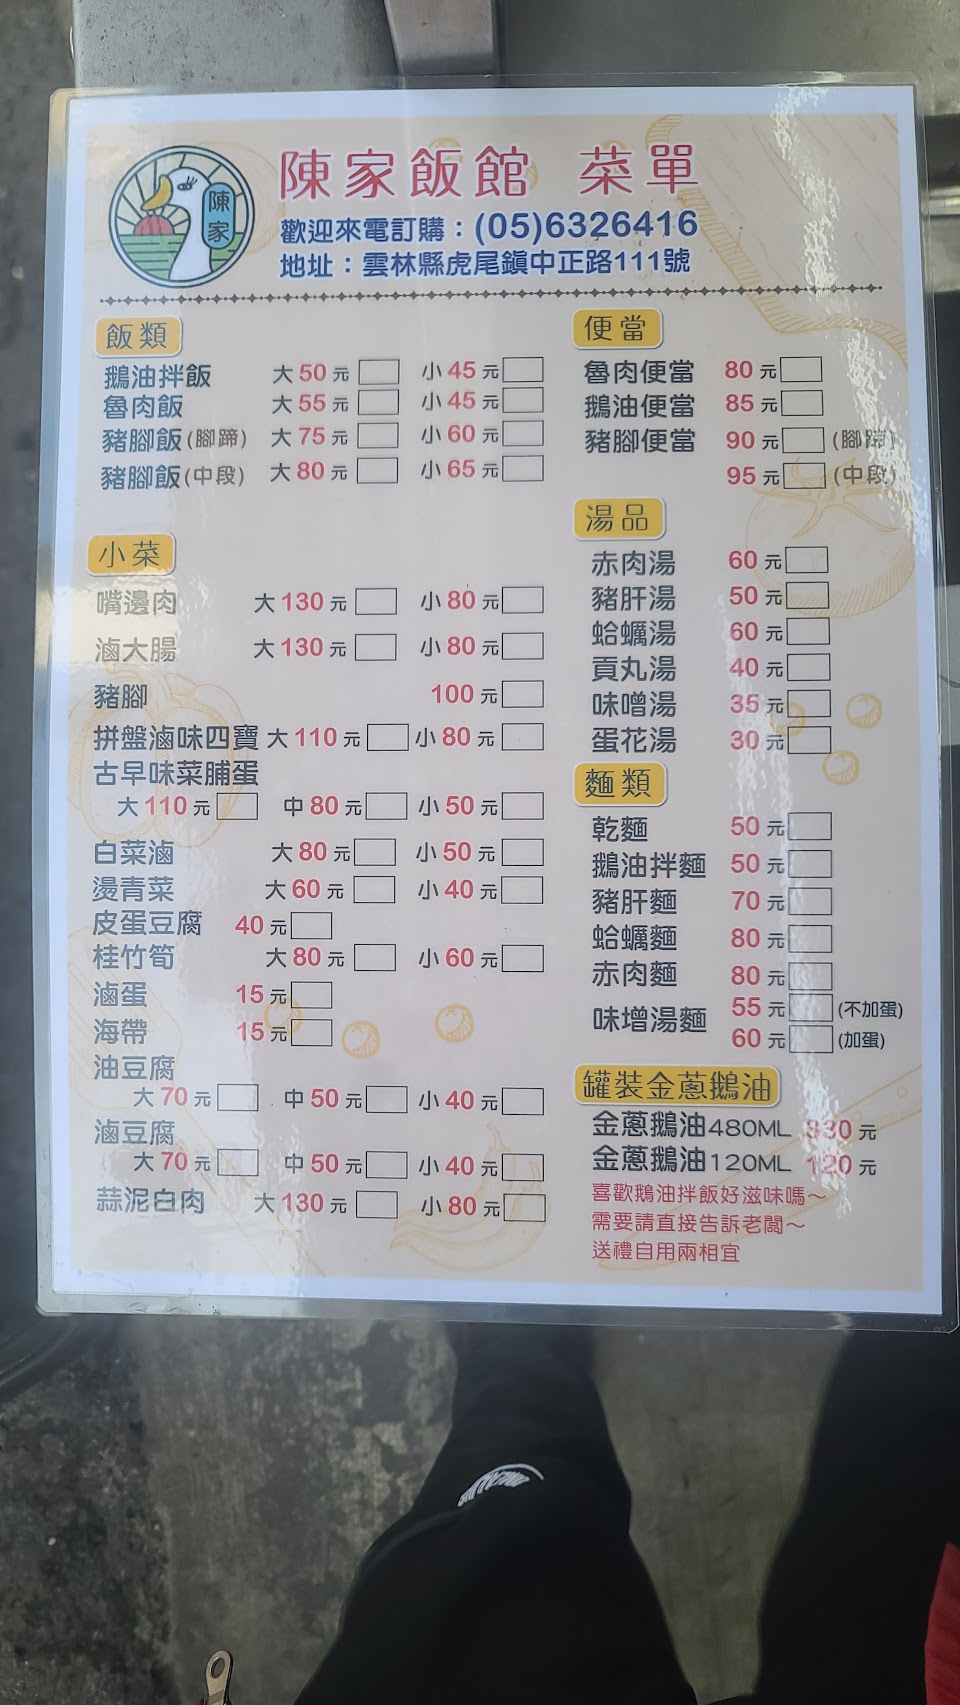 陳家
陳家飯館 菜單
歡迎來電訂購：(05)6326416
地址：雲林縣虎尾鎮中正路111號
飯類
鵝油拌飯 大50元 小45元
魯肉飯 大55元 小45元
豬腳飯(腳蹄) 大75元 小60元
豬腳飯(中段) 大80元 小65元
小菜
嘴邊肉 大130元 小80元
滷大腸 大130元 小80元
豬腳 100元
拼盤滷味四寶 大110元 小80元
古早味菜脯蛋
大110元 中80元 小50元
白菜滷 大80元 小50元
燙青菜 大60元 小40元
皮蛋豆腐 40元
桂竹筍 大80元 小60元
滷蛋 15元
海帶 15元
油豆腐
大70元 中50元 小40元
滷豆腐
大70元 中50元 小40元
蒜泥白肉 大130元 小80元
便當
魯肉便當 80元
鵝油便當 85元
豬腳便當 90元 (腳蹄)
95元 (中段)
湯品
赤肉湯 60元
豬肝湯 50元
蛤蠣湯 60元
貢丸湯 40元
味噌湯 35元
蛋花湯 30元
麵類
乾麵 50元
鵝油拌麵 50元
豬肝麵 70元
蛤蠣麵 80元
赤肉麵 80元
味增湯麵 55元 (不加蛋)
60元 (加蛋)
罐裝金蔥鵝油
金蔥鵝油480ML 330元
金蔥鵝油120ML 120元
喜歡鵝油拌飯好滋味嗎～
需要請直接告訴老闆～
送禮自用兩相宜